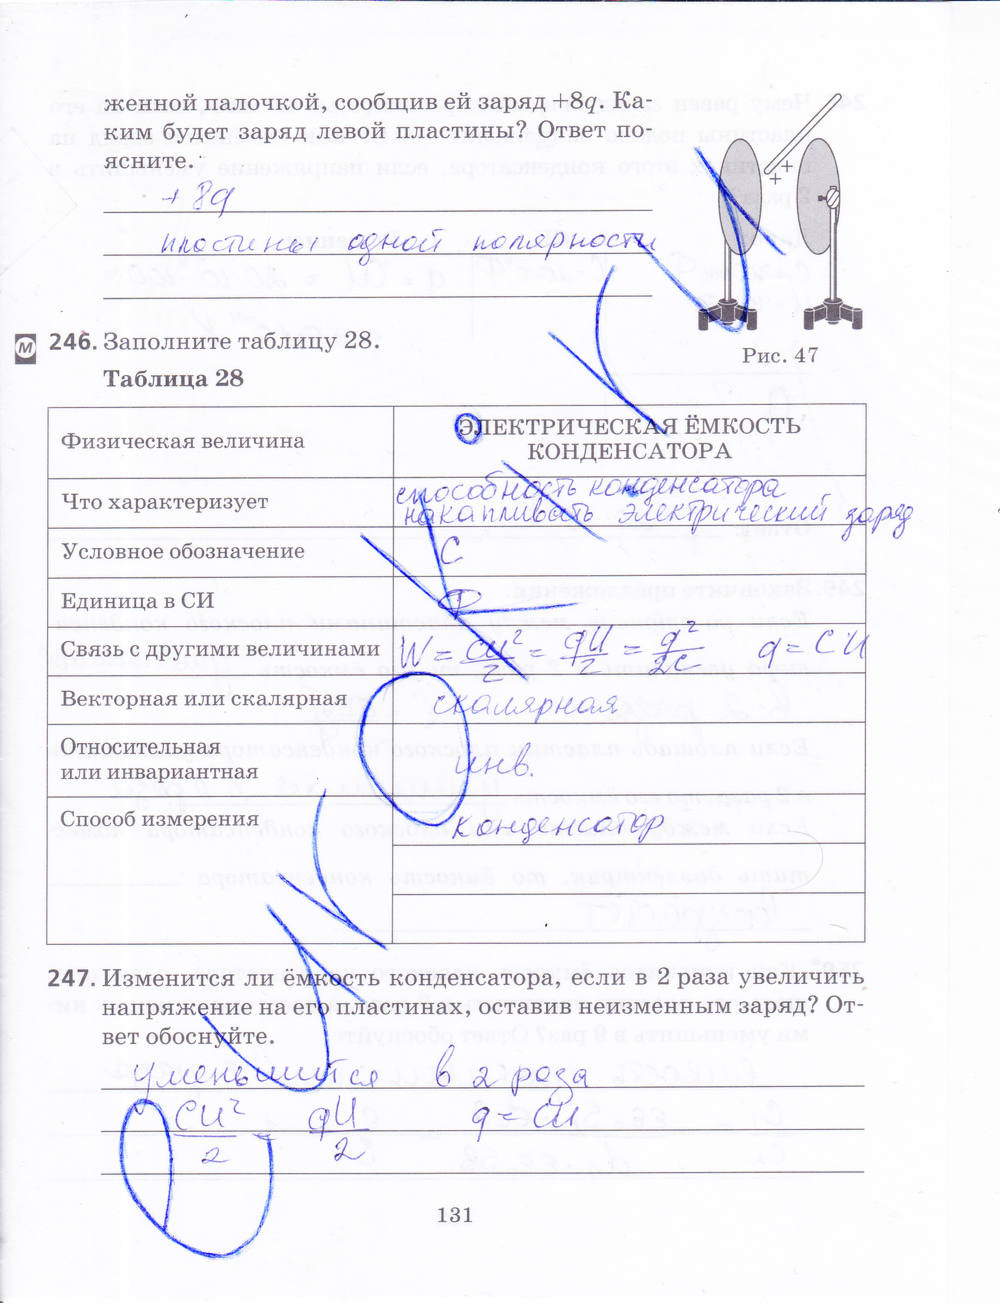 женной палочкой, сообщив ей заряд +8q. Ка-
ким будет заряд левой пластины? Ответ по-
ясните.
+ 8q
пластины одной полярности
+ +
Рис. 47
М 246. Заполните таблицу 28.
Таблица 28
Физическая величина
ЭЛЕКТРИЧЕСКАЯ ЁМКОСТЬ
КОНДЕНСАТОРА
Что характеризует
способность конденсатора
накапливать электрический заряд
Условное обозначение
C
Единица в СИ
Ф
Связь с другими величинами
W = CU²/2 = qU/2 = q²/2C q = CU
Векторная или скалярная
скалярная
Относительная
или инвариантная
инв.
Способ измерения
конденсатор
247. Изменится ли ёмкость конденсатора, если в 2 раза увеличить
напряжение на его пластинах, оставив неизменным заряд? От-
вет обоснуйте.
уменьшится в 2 раза
CU²/2 = qU/2 q = CU
131